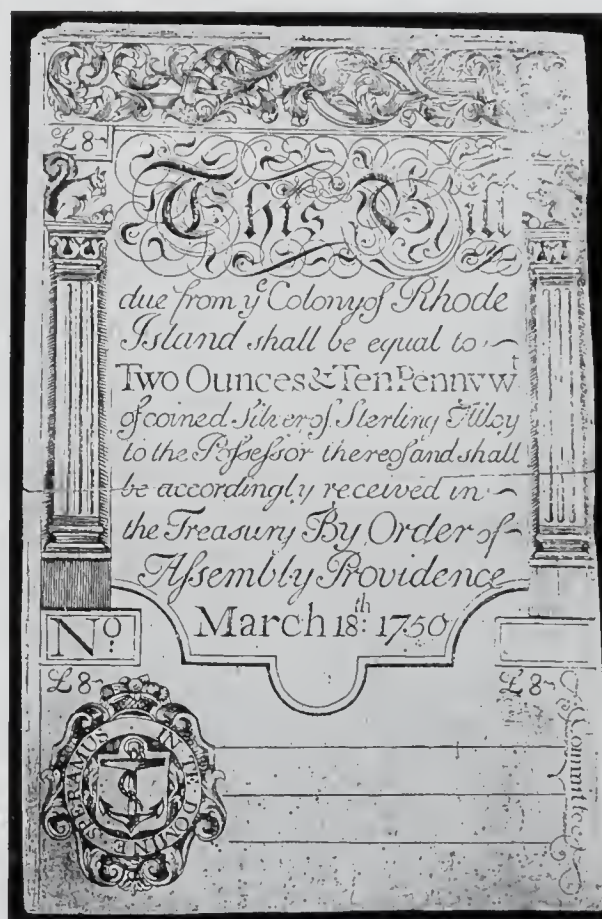 £ 8
This Bill
due from yͤ Colony of Rhode
Island shall be equal to
Two Ounces & Ten Pennywᵗ
of coined Silver of Sterling Alloy
to the Poſseſsor thereof and shall
be accordingly received in
the Treasury By Order of
Aſsembly Providence
March 18ᵗʰ: 1750
Nº
£ 8
£ 8
IN TE DOMINE SPERAMUS
Committee